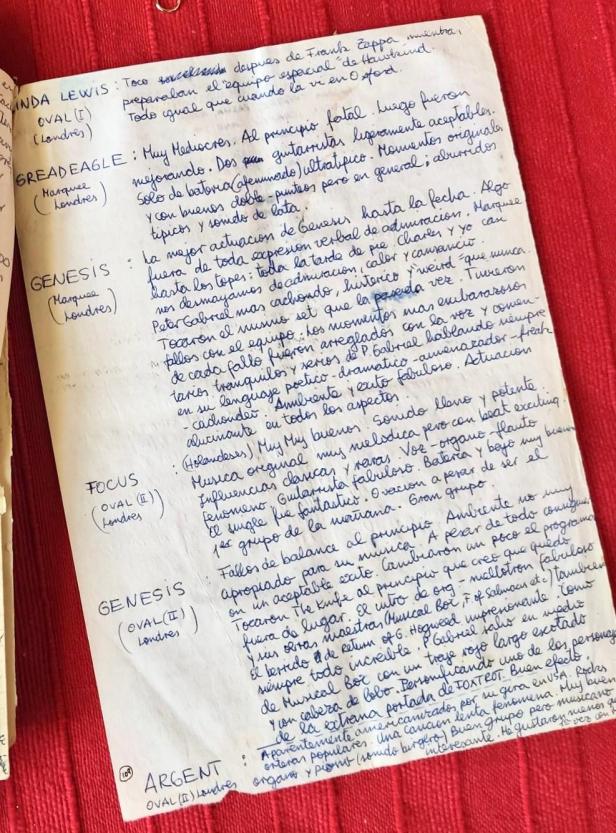 INDA LEWIS : Toco despues de Frank Zappa mientras
OVAL (I) preparaban el "equipo espacial" de Hawkwind.
(Londres) Todo igual que cuando la vi en Oxford.
GREADEAGLE : Muy Mediocres. Al principio fatal. Luego fueron
(Marquee mejorando. Dos guitarristas ligeramente aceptables.
Londres) Solo de bateria (afeminado) ultratipico. Momentos originales
y con buenos doble-punteos pero en general; aburridos
tipicos y sonido de lata.
GENESIS : La mejor actuacion de Genesis hasta la fecha. Algo
(Marquee fuera de toda expresion verbal de admiracion. Marquee
Londres) hasta los topes: toda la tarde de pie. Charles y yo casi
nos desmayamos de admiracion, calor y cansancio.
Peter Gabriel mas cachondo, histerico y "weird" que nunca.
Tocaron el mismo set que la pasada vez. Tuvieron
fallos con el equipo. Los momentos mas embarazosos
de cada fallo fueron arreglados con la voz y comen-
tarios tranquilos y serios de P. Gabriel hablando siempre
en su lenguaje poetico-dramatico-amenazador-freak
-cachondeo. Ambiente y exito fabuloso. Actuacion
alucinante en todos los aspectos.
FOCUS (Holandeses) Muy Muy buenos. Sonido llano y potente.
(OVAL (II) Musica original muy melodica pero con beat exciting.
Londres) Influencias clasicas y raras. Voz-organo-flauta
fenomeno. Guitarrista fabuloso. Bateria y bajo muy buenos
El single fue fantastico. Ovacion a pesar de ser el
1er grupo de la mañana. Gran grupo.
GENESIS : Fallos de balance al principio. Ambiente no muy
(OVAL (II) apropiado para su musica. A pesar de todo
Londres) on un aceptable exito. Cambiaron un poco el programa
Tocaron The Knife al principio que creo que quedo
fuera de lugar. El intro de org-mellotron fabuloso
y sus obras maestras (Musical Box, F of Salmacis etc) tambien
el berrido de Return of G. Hogweed impresionante. Como
siempre todo increible. P Gabriel salio en medio
de Musical Box con un traje rojo largo escotado
y con cabeza de lobo. Personificando uno de los personajes
de la extraña portada de FOXTROT. Buen efecto.
109 ARGENT : Aparentemente americanizados por su gira en USA. Rock
OVAL (II) Londres enteras populares. Una cancion lenta fenomena. Muy buen
organo y piano (sonido burgers) Buen grupo pero musicalmente
interesante. Me gustaron menos que